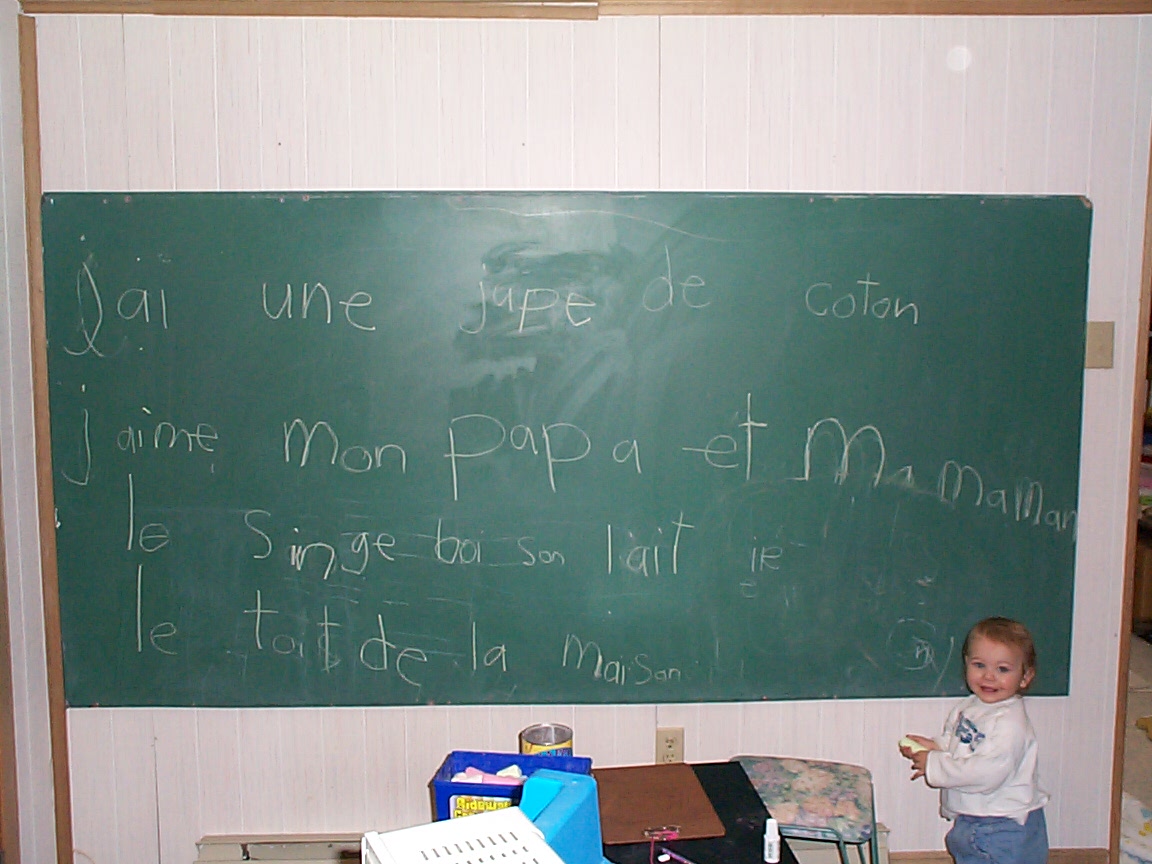 j'ai une jupe de coton
j'aime mon papa et Ma maman
le singe boi son lait
le toit de la maison
Sidewalk